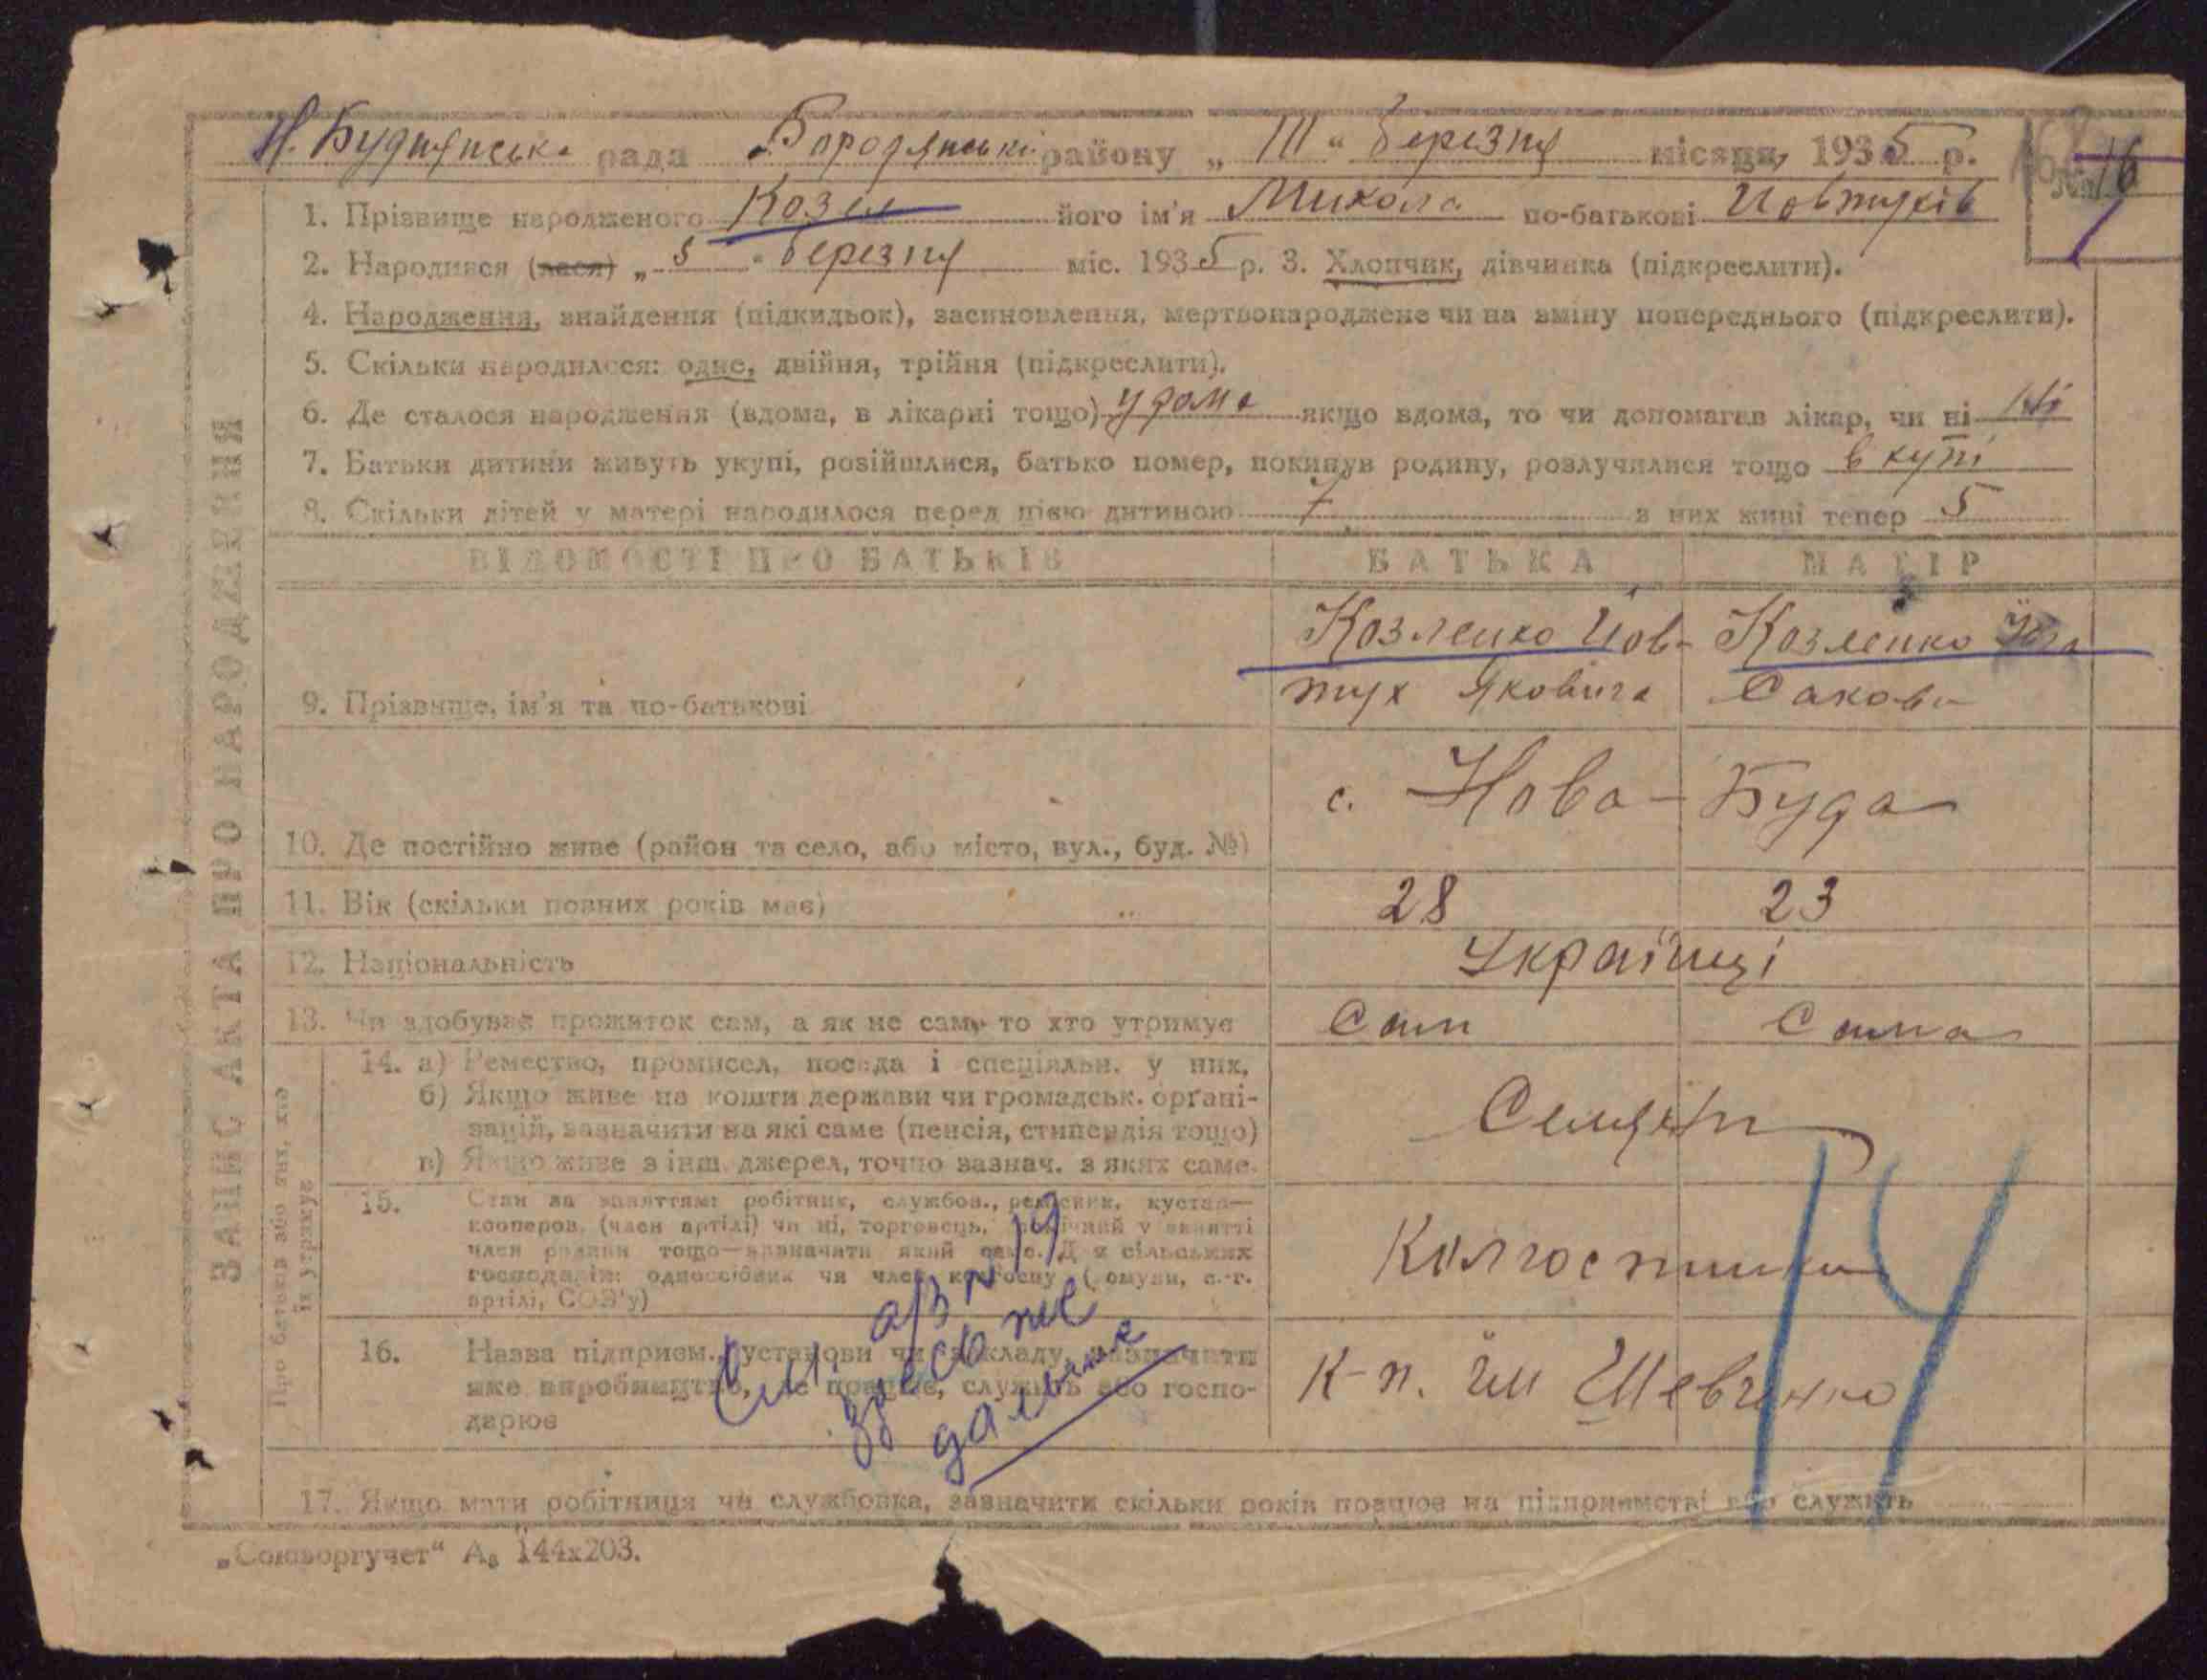 Н. Будянська рада Бородянські району „ III “ березня місяця, 1935 р.
16
1. Прізвище народженого Козел його ім'я Микола по-батькові Йовтухів
2. Народився (лася) „ 5 “ березня міс. 1935 р. 3. Хлопчик, дівчинка (підкреслити).
4. Народження, знайдення (підкидьок), засиновлення, мертвонароджене чи на зміну попереднього (підкреслити).
5. Скільки народилося: одне, двійня, трійня (підкреслити).
6. Де сталося народження (вдома, в лікарні тощо) удома якщо вдома, то чи допомагав лікар, чи ні ні
7. Батьки дитини живуть укупі, розійшлися, батько помер, покинув родину, розлучилися тощо в купі
8. Скільки дітей у матері народилося перед цією дитиною 7 з них живі тепер 5
ЗАПИС АКТА ПРО НАРОДЖЕННЯ
ВІДОМОСТІ ПРО БАТЬКІВ БАТЬКА МАТІР
9. Прізвище, ім'я та по-батькові Козленко Йов- Козленко
тух Яковича Сакова
10. Де постійно живе (район та село, або місто, вул., буд. №) с. Нова-Буда
11. Вік (скільки повних років має) 28 23
12. Національність Українці
13. Чи здобуває прожиток сам, а як не сам, то хто утримує Сам Сама
Про батьків або тих, хто
їх утримує
14. а) Ремество, промисел, посада і спеціяльн. у них,
б) Якщо живе на кошти держави чи громадськ. орґані-
зацій, зазначити на які саме (пенсія, стипендія тощо)
в) Якщо живе з інш. джерел, точно зазнач. з яких саме.
Селяни
15. Стан за заняттям: робітник, службов., ремісник, кустар—
кооперов. (член артілі) чи ні, торговець, помічний у занятті
член родини тощо—зазначити який саме. Для сільських
господарів: одноосібник чи член колгоспу (комуни, с.-г.
артілі, СОЗ'у)
Колгоспники
16. Назва підприєм., установи чи закладу, зазначити
яке виробництво, де працює, служить або госпо-
дарює
К-п. ім Шевченко
См. а/з N 19
здесь же
дальше
14
17. Якщо мати робітниця чи службовка, зазначити скільки років працює на підприємстві або служить
„Союзоргучет“ А₅ 144х203.